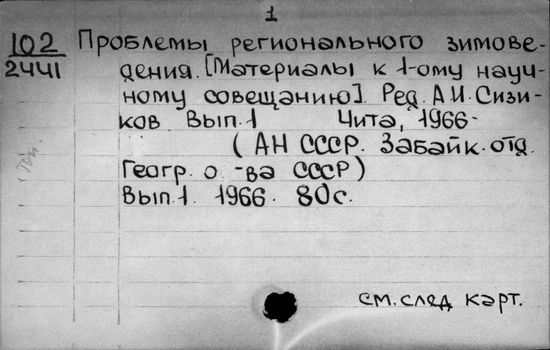 1
102 Проблемы регионального зимове-
2441 дения. [Материалы к 1-ому науч-
ному совещанию]. Ред. А.И. Сизи-
ков Вып. 1 Чита, 1966-
(АН СССР. Забайк. отд.
Геогр. о-ва СССР)
Вып. 1. 1966. 80с.
см. след карт.